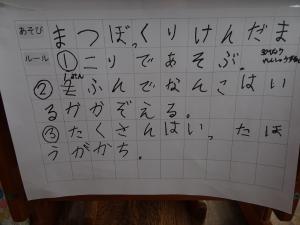 あそび まつぼっくりけんだま
ルール ①こりであそぶ。
②五ふんでなんこはい
るかかぞえる。
③たくさんはいったほ
うがかち。